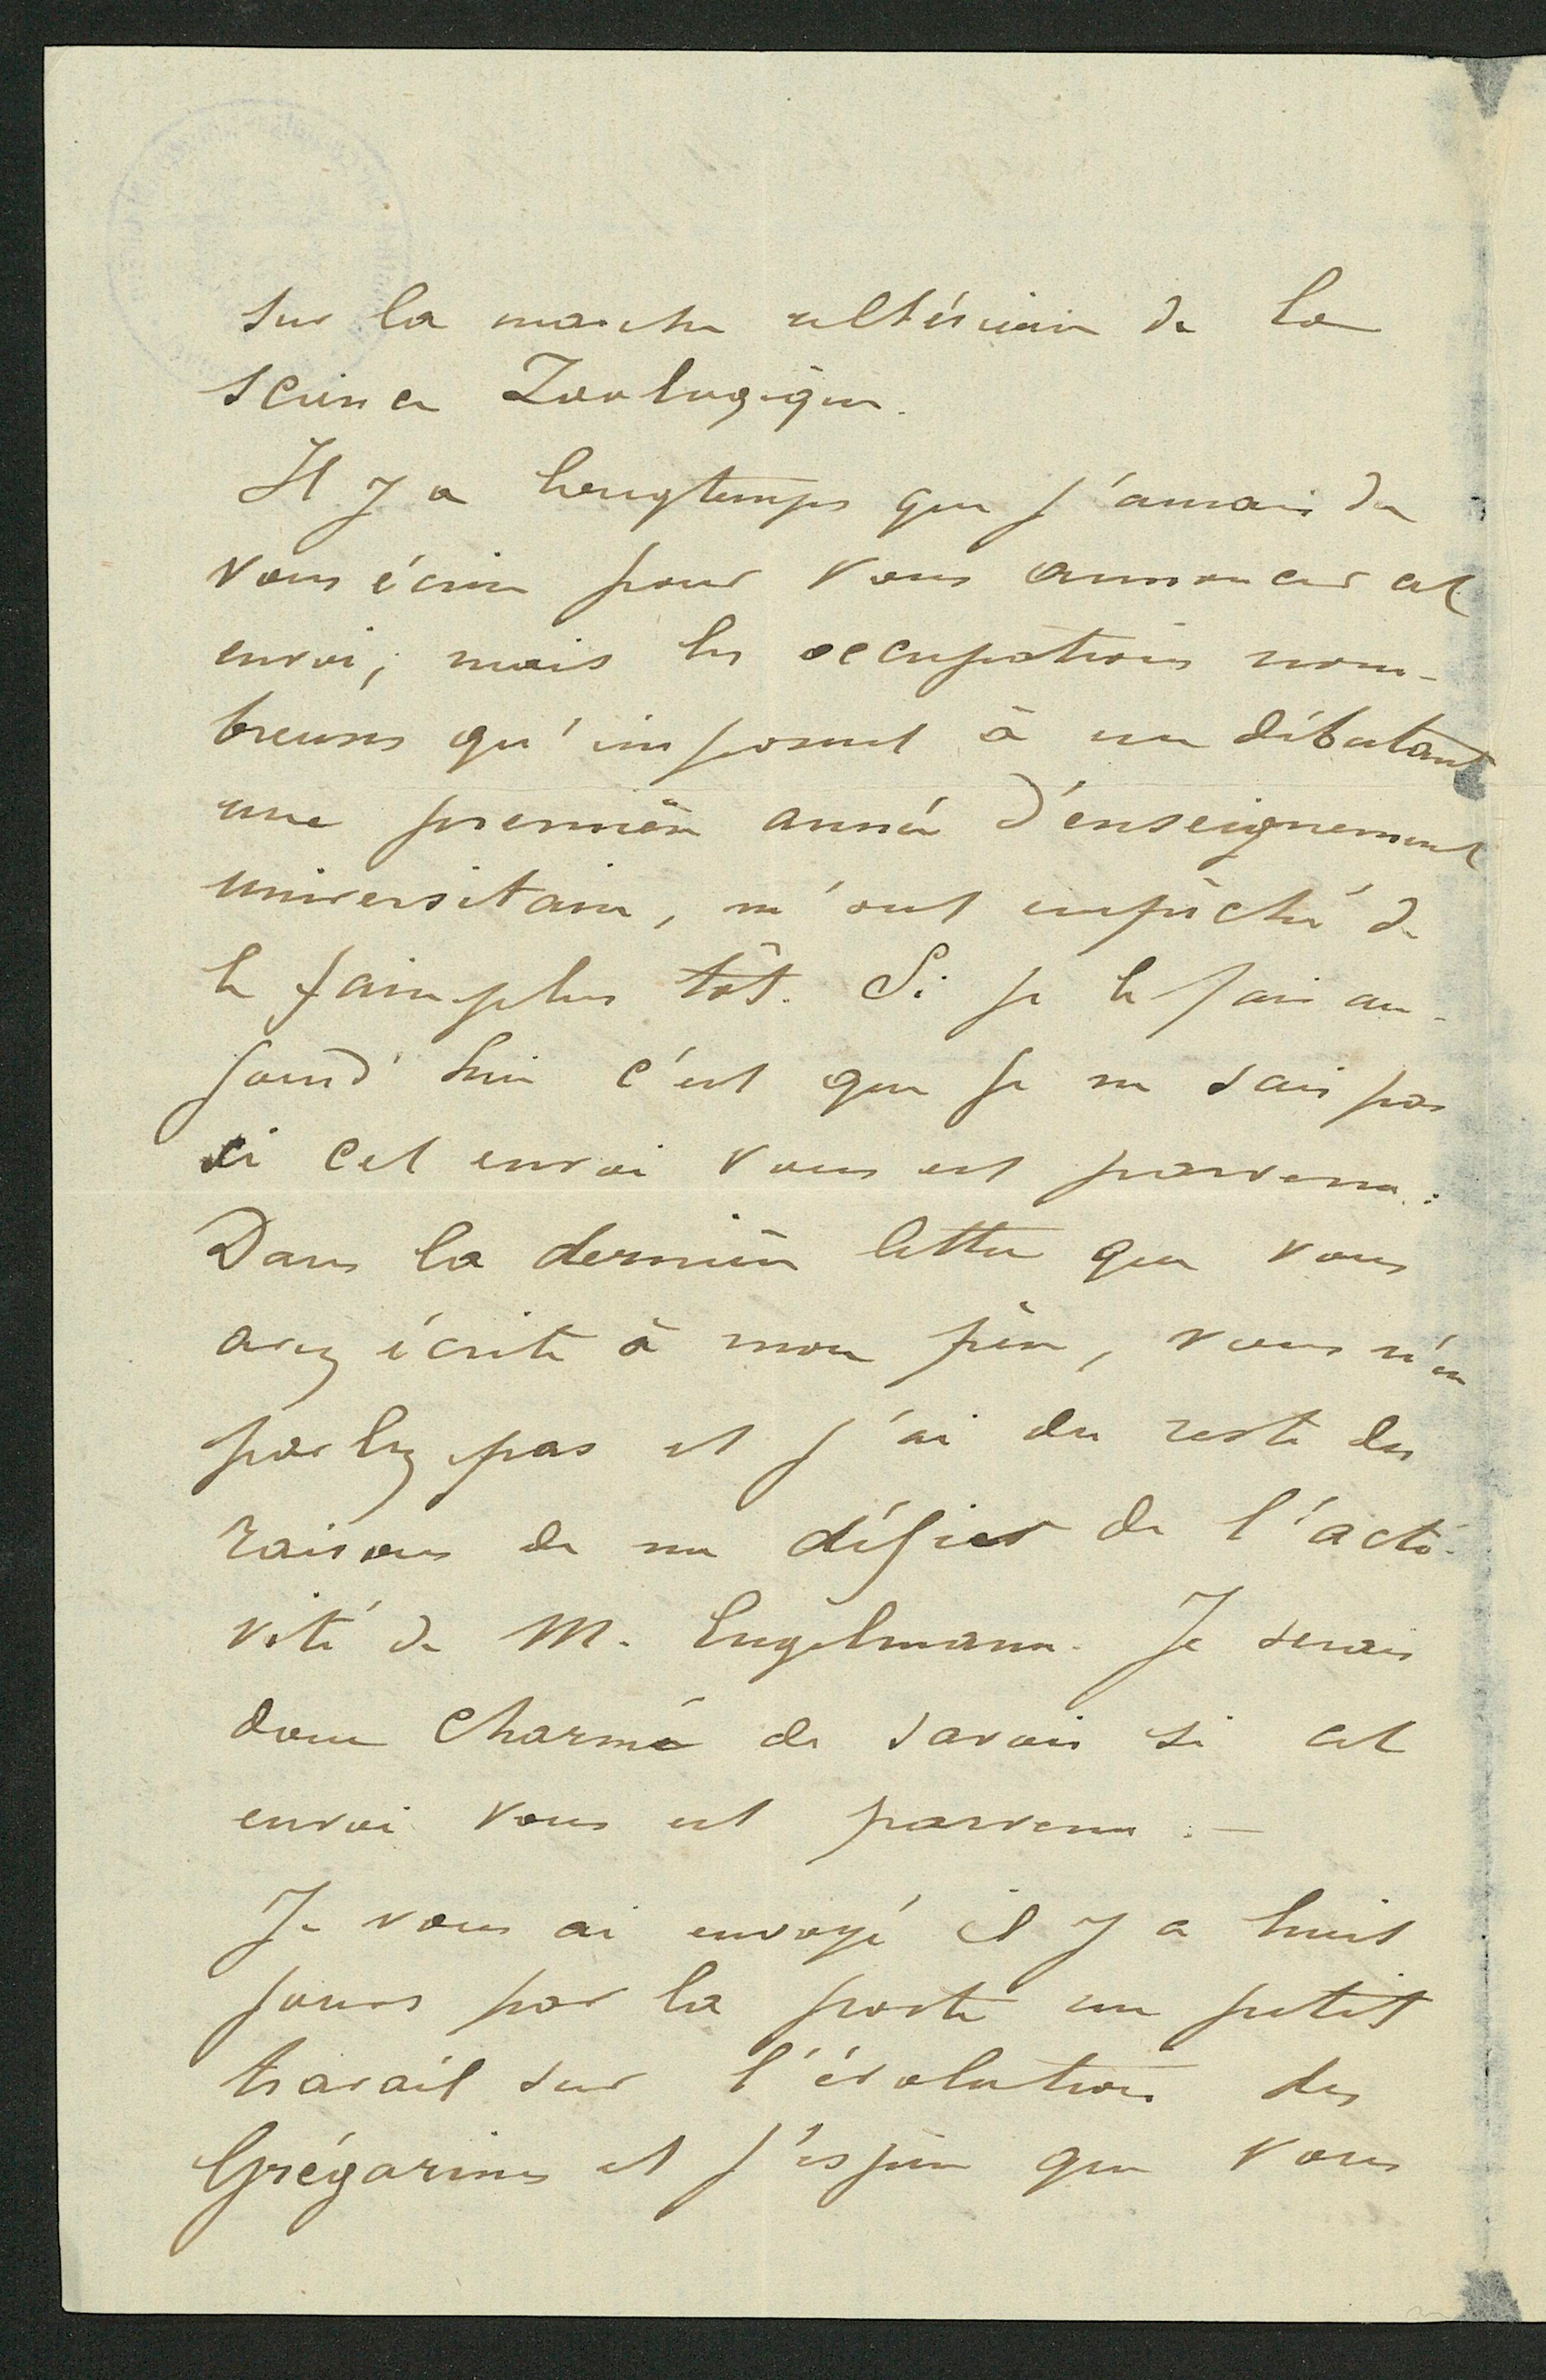 sur la marche ultérieure de la
science Zoologique.
Il y a longtemps que j'aurais du
vous écrire pour vous annoncer cet
envoi; mais les occupations nom-
breuses qu'imposent à un débutant
une première année d'enseignement
universitaire, m'ont empêché de
le faire plus tôt. Si je le fais au-
jourd'hui c'est que je ne sais pas
si cet envoi vous est parvenu:
Dans la dernière lettre que vous
avez écrite à mon père, vous n'en
parlez pas et j'ai du reste des
raisons de me défier de l'acti-
vité de M. Engelmann. Je serais
donc charmé de savoir si cet
envoi vous est parvenu. —
Je vous ai envoyé il y a huit
jours par la poste un petit
travail sur l'évolution des
Grégarines et j'espère que vous